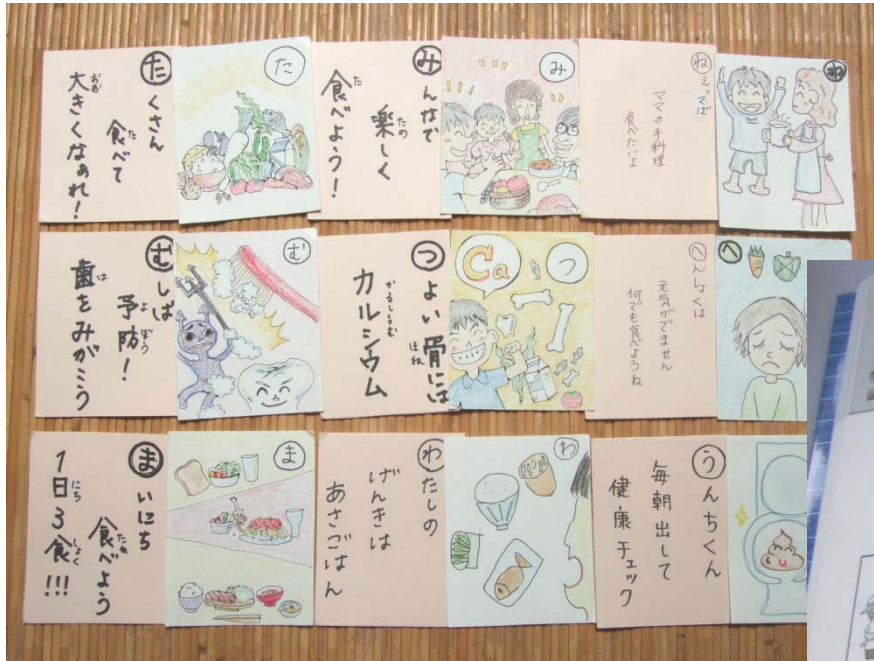 たくさん
食べて
た
大きくなぁれ!
おお
た
みんなで
楽しく
たの
食べよう!
た
み
ねぇってば
ママの手料理
食べたいよ
ね
むしば
予防!
よぼう
歯をみがこう
は
む
つよい骨には
ほね
カルシウム
かるしうむ
Ca
つ
へんしょくは
元気がでません
何でも食べようね
へ
まいにち
食べよう
た
1日3食!!!
にち しょく
ま
わたしの
げんきは
あさごはん
わ
うんちくん
毎朝出して
健康チェック